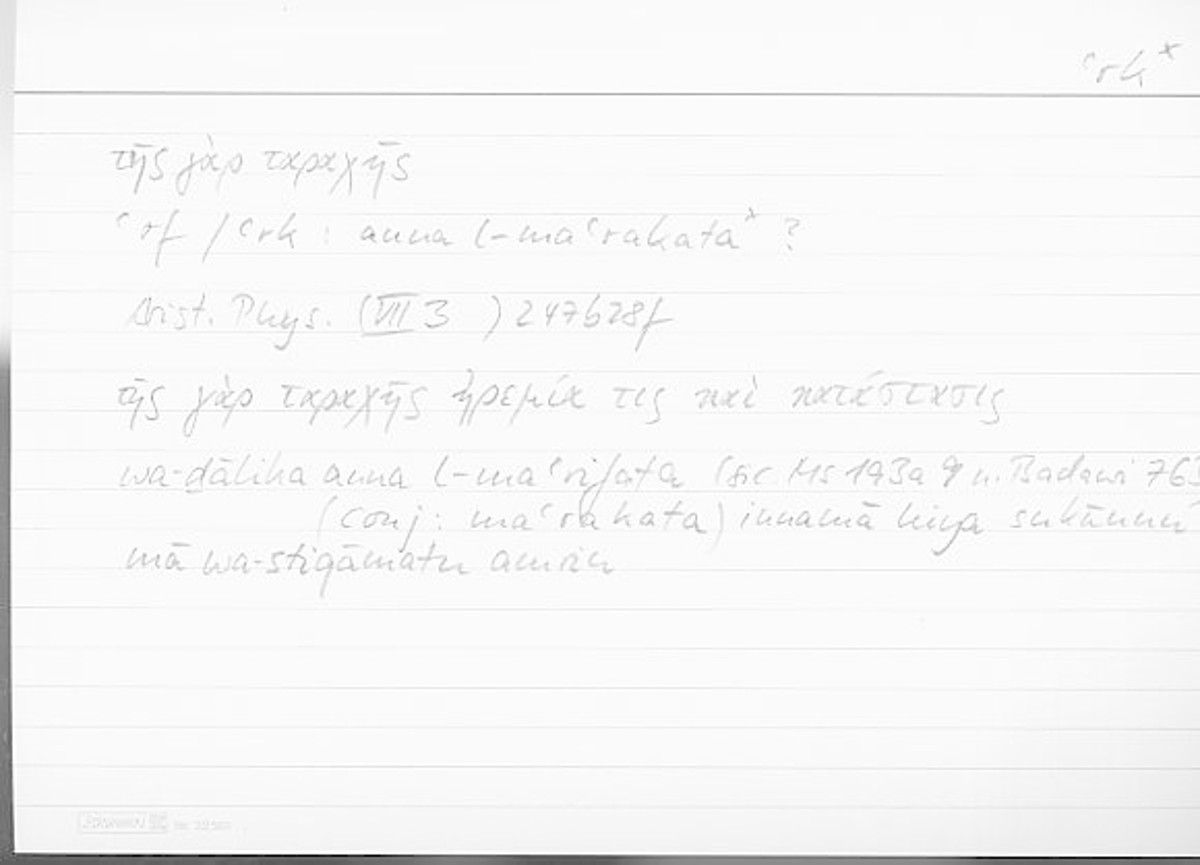 ʿrk*
τῆς γὰρ ταραχῆς
ʿrf / ʿrk : anna l-maʿrakata* ?
Arist. Phys. (VII 3 ) 247b28f
τῆς γὰρ ταραχῆς ἠρεμία τις καὶ κατάστασις
wa-ḏālika anna l-maʿrifata (sic Ms 193a 9 u. Badawi 763
(conj: maʿrakata) innamā hiya sukūnun
mā wa-stiqāmatu amrin